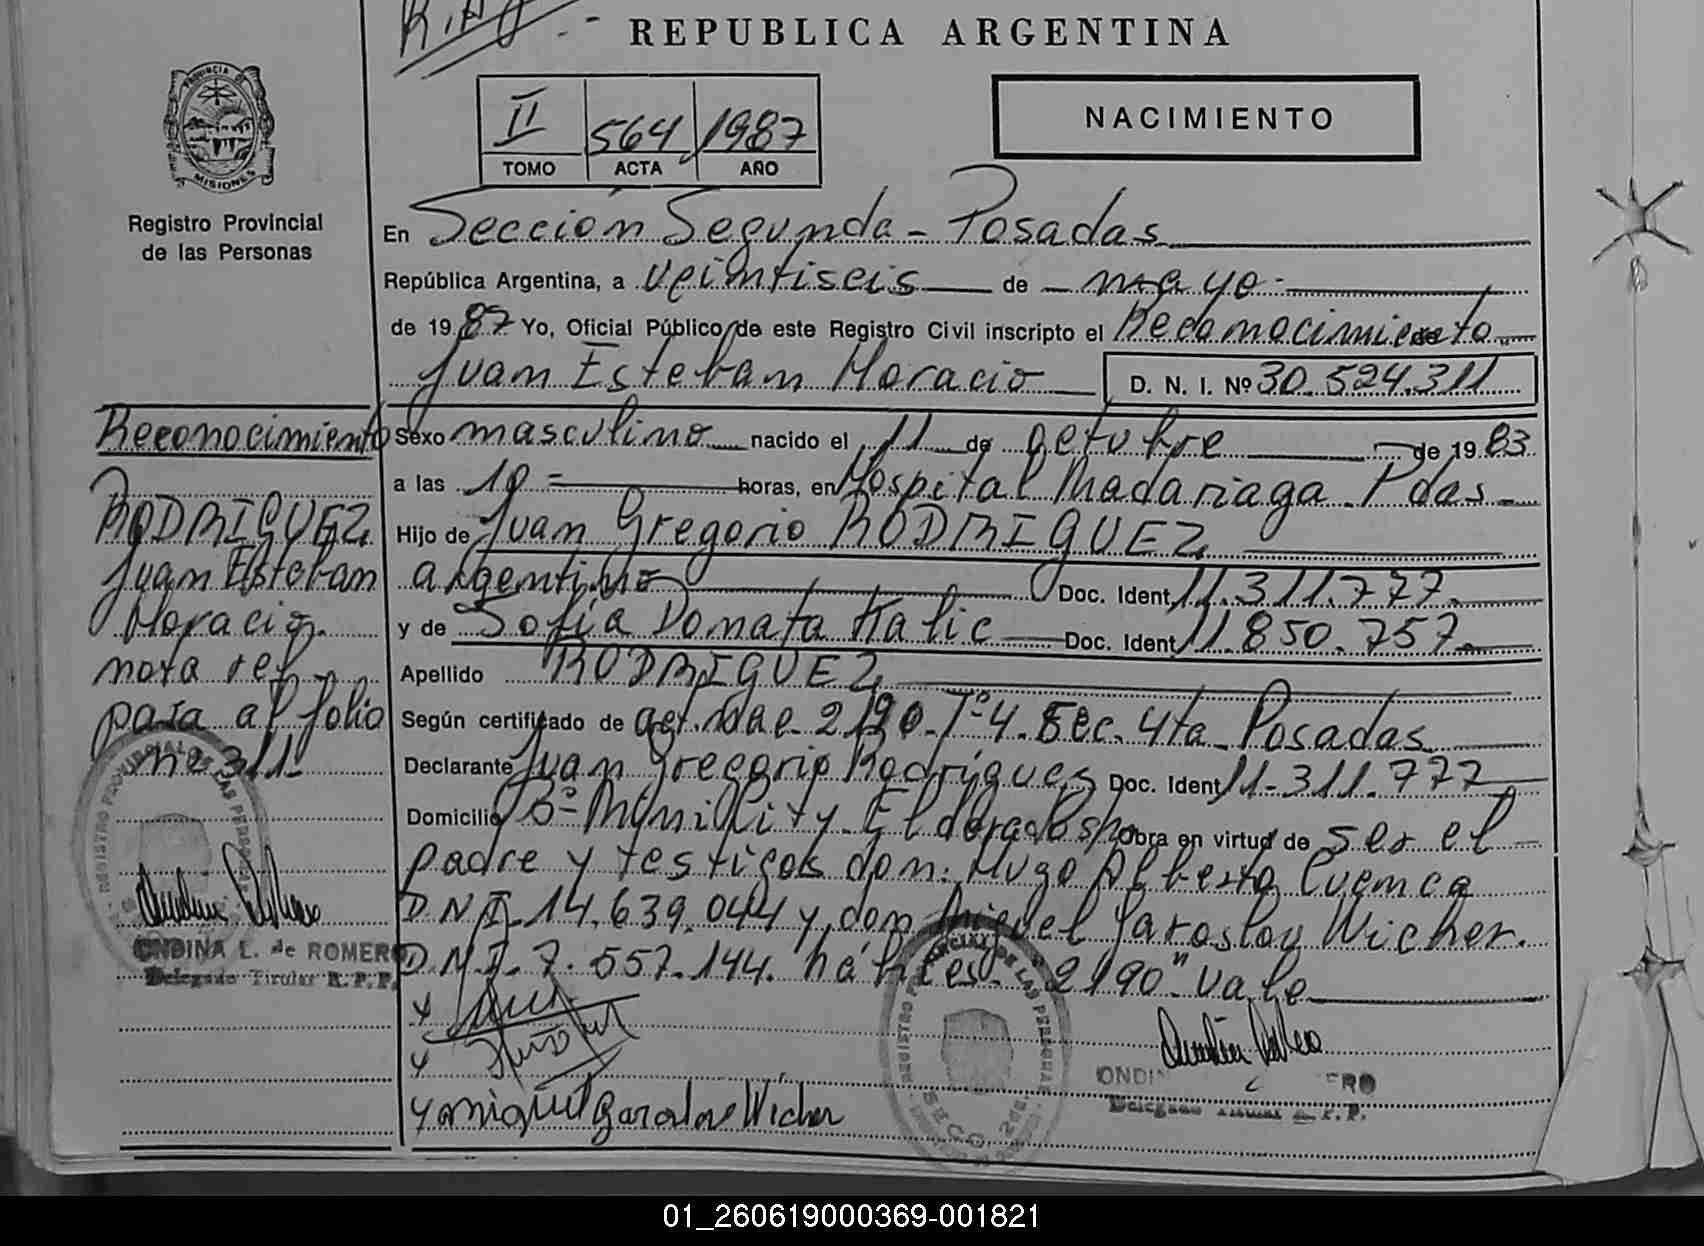 REPUBLICA ARGENTINA
PROVINCIA DE
MISIONES
Registro Provincial
de las Personas
II 564 1987
TOMO ACTA AÑO
NACIMIENTO
En Sección Segunda - Posadas
República Argentina, a veintiseis de mayo
de 1987 Yo, Oficial Público de este Registro Civil inscripto el Reconocimiento
Juan Esteban Horacio D. N. I. Nº 30.524.311
Sexo masculino nacido el 11 de octubre de 1983
a las 10 horas, en Hospital Madariaga Pdas
Hijo de Juan Gregorio RODRIGUEZ
argentino Doc. Ident. 11.311.777
y de Sofía Donata Kalic Doc. Ident. 11.850.757
Apellido RODRIGUEZ
Según certificado de act. nac. 2190 - Tº 4. Sec. 4ta Posadas
Declarante Juan Gregorio Rodrígues Doc. Ident. 11.311.777
Domicilio Bº Eldorado Obra en virtud de ser el
padre y testigos don: Hugo Alberto Cuenca
D N I. 14.639.044 y don Miguel Jaroslav Wicher.
D.N.I. 7.557.144. hábiles. "2190" vale
Reconocimiento
RODRIGUEZ
Juan Esteban
Horacio.
nota ref.
pasa al folio
nº 311
ONDINA L. de ROMERO
Delegado Titular R.P.P.
Delegado Titular R.P.P.
01_260619000369-001821